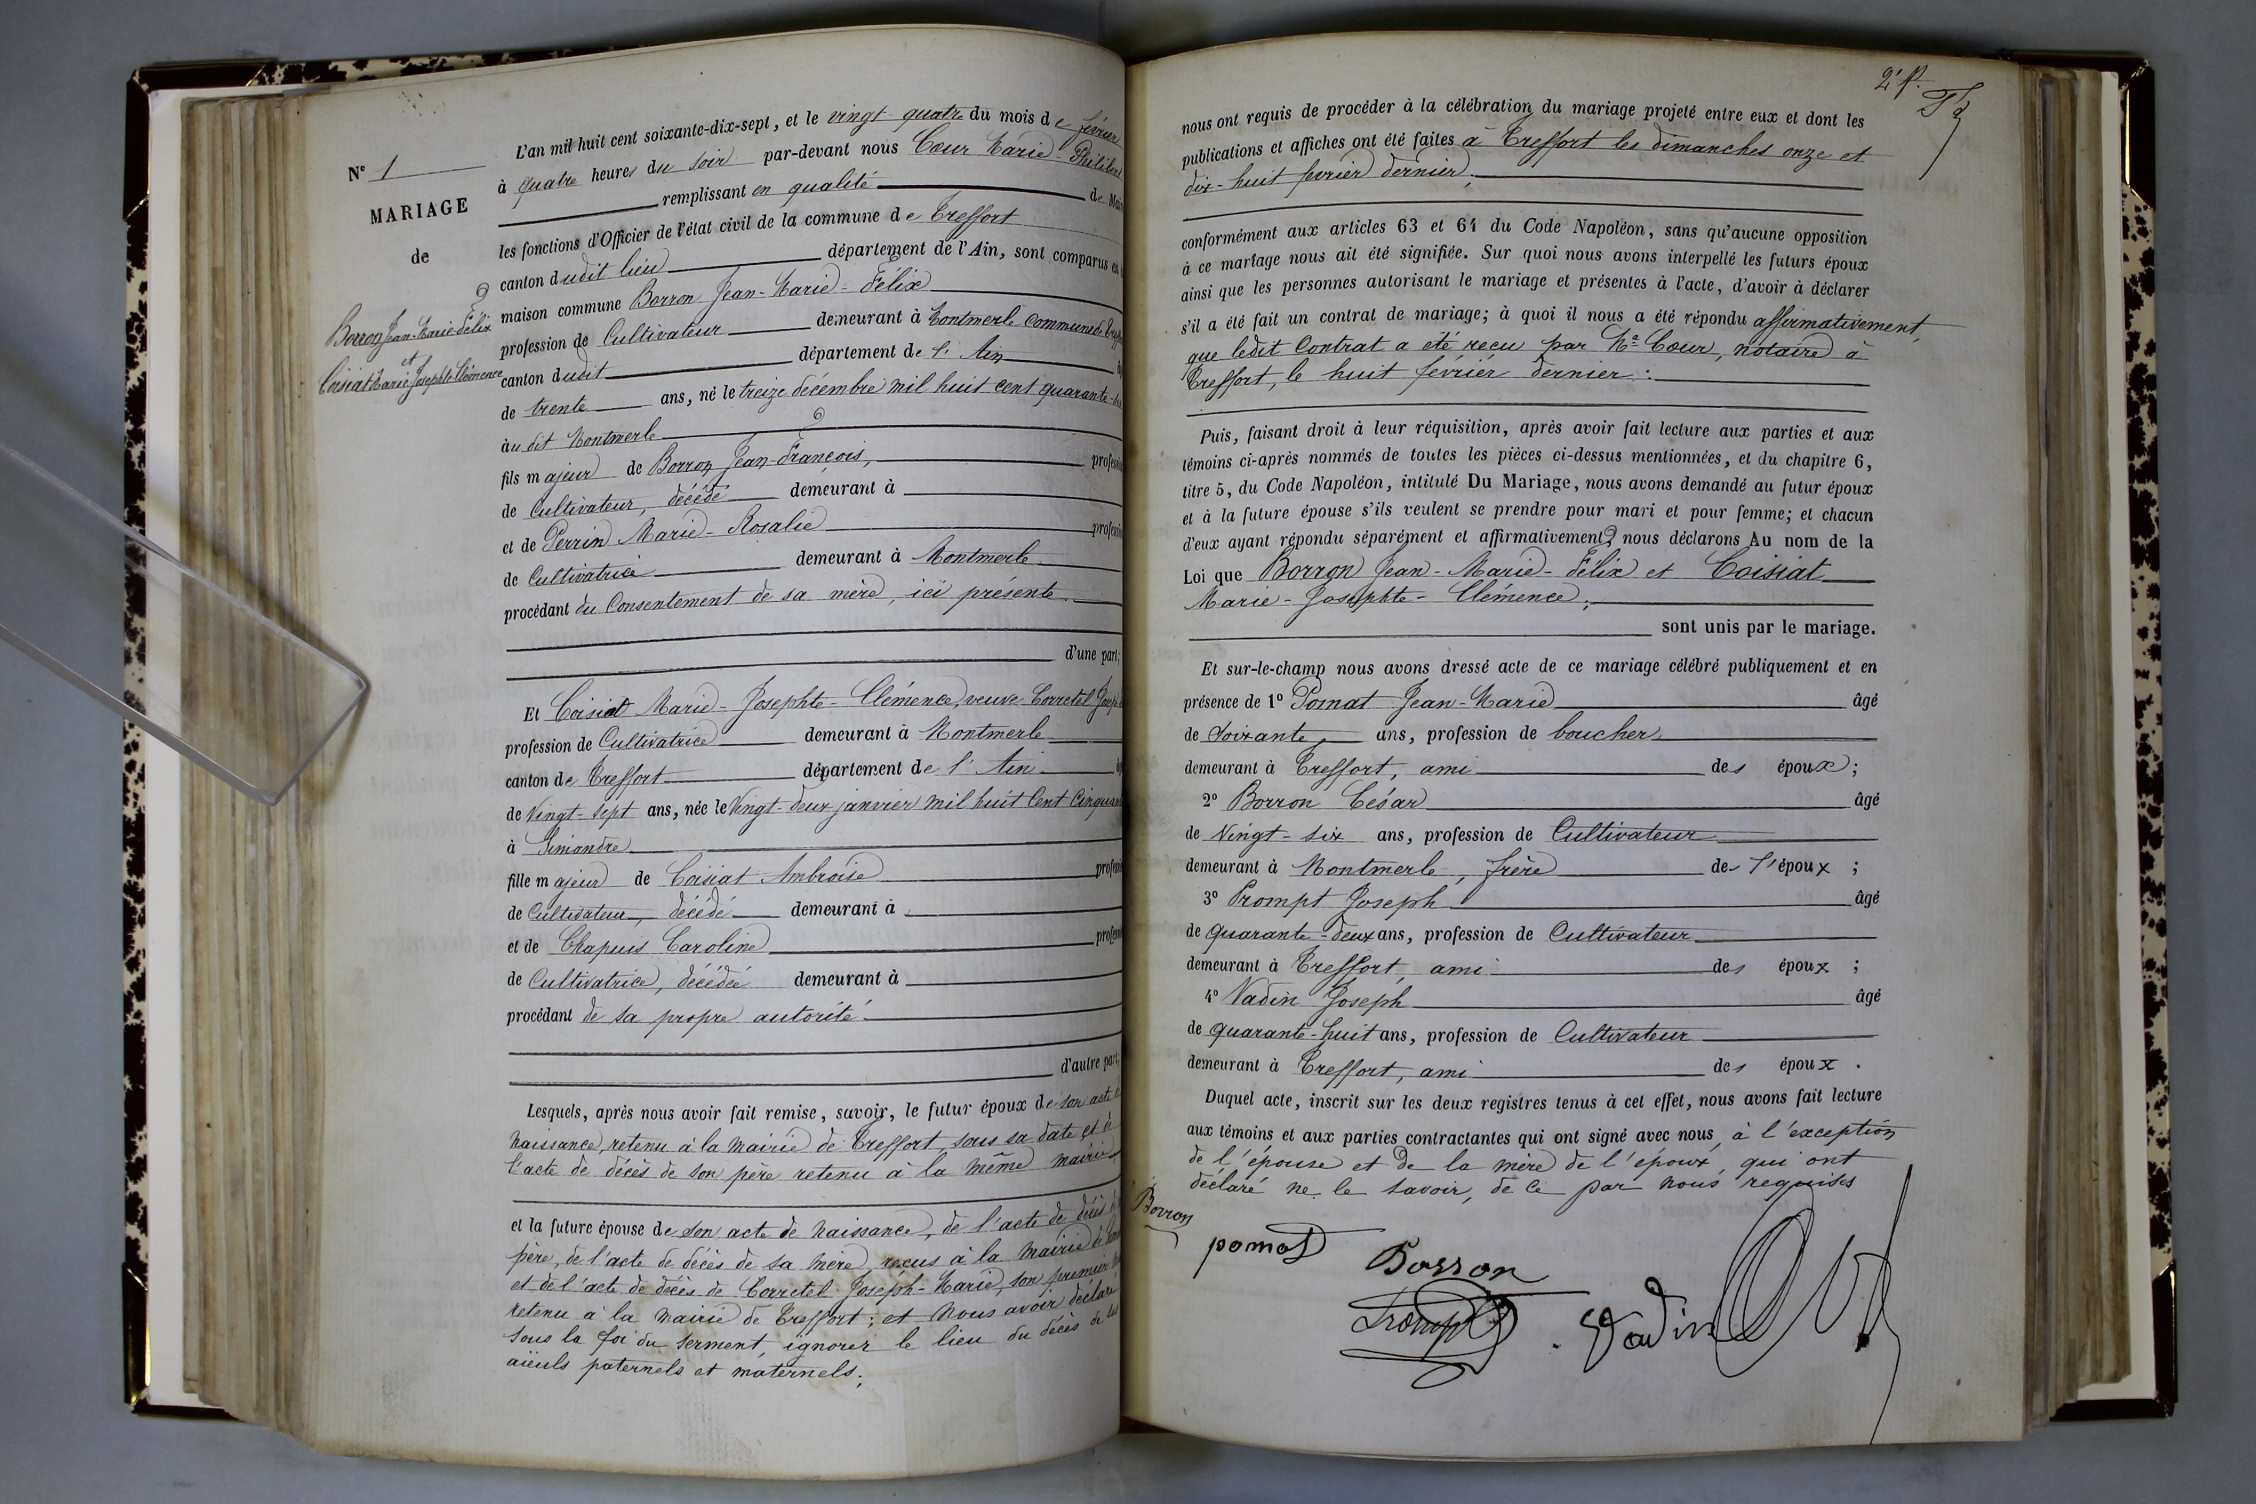 N° 1
MARIAGE
de
Borron Jean-Marie-Félix
et
Coisiat Marie Josephte Clémence
L'an mil huit cent soixante-dix-sept, et le vingt quatre du mois de février
à quatre heures du soir par-devant nous Cœur Marie-Philibert
remplissant en qualité de Maire
les fonctions d'Officier de l'état civil de la commune de Treffort
canton dudit lieu département de l'Ain, sont comparus en
maison commune Borron Jean-Marie-Félix
profession de Cultivateur demeurant à Montmerle commune de
canton dudit département de l'Ain
de trente ans, né le treize décembre mil huit cent quarante-
àu dit Montmerle
fils majeur de Borron Jean-François, profession
de Cultivateur, décédé demeurant à
et de Perrin Marie-Rosalie profession
de Cultivatrice demeurant à Montmerle
procédant du Consentement de sa mère, ici présente.
d'une part;
Et Coisiat Marie-Josephte-Clémence, veuve Corretel Joseph
profession de Cultivatrice demeurant à Montmerle
canton de Treffort département de l'Ain
de Vingt-sept ans, née le Vingt-deux janvier mil huit Cent Cinquante
à Simandre
fille majeur de Coisiat Ambroise profession
de Cultivateur, décédé demeurant à
et de Chapuis Caroline profession
de Cultivatrice, décédée demeurant à
procédant de sa propre autorité
d'autre part;
Lesquels, après nous avoir fait remise, savoir, le futur époux de son acte de
naissance, retenu à la mairie de Treffort, sous sa date et de
l'acte de décès de son père retenu à la même mairie,
et la future épouse de son acte de naissance, de l'acte de décès
père, de l'acte de décès de sa mère, reçus à la mairie de
et de l'acte de décès de Corretel Joseph-Marie, son premier
retenu à la mairie de Treffort; et Nous avoir déclaré
sous la foi du serment, ignorer le lieu du décès de
aïeuls paternels et maternels;
2e f.
nous ont requis de procéder à la célébration du mariage projeté entre eux et dont les
publications et affiches ont été faites à Treffort les dimanches onze et
dix-huit février dernier;
conformément aux articles 63 et 64 du Code Napoléon, sans qu'aucune opposition
à ce mariage nous ait été signifiée. Sur quoi nous avons interpellé les futurs époux
ainsi que les personnes autorisant le mariage et présentes à l'acte, d'avoir à déclarer
s'il a été fait un contrat de mariage; à quoi il nous a été répondu affirmativement,
que ledit Contrat a été reçu par Me Cœur, notaire à
Treffort, le huit février dernier:
Puis, faisant droit à leur réquisition, après avoir fait lecture aux parties et aux
témoins ci-après nommés de toutes les pièces ci-dessus mentionnées, et du chapitre 6,
titre 5, du Code Napoléon, intitulé Du Mariage, nous avons demandé au futur époux
et à la future épouse s'ils veulent se prendre pour mari et pour femme; et chacun
d'eux ayant répondu séparément et affirmativement, nous déclarons Au nom de la
Loi que Borron Jean-Marie-Félix et Coisiat
Marie-Josephte-Clémence;
sont unis par le mariage.
Et sur-le-champ nous avons dressé acte de ce mariage célébré publiquement et en
présence de 1° Pomat Jean-Marie âgé
de soixante ans, profession de boucher
demeurant à Treffort, ami des époux;
2° Borron César âgé
de Vingt-six ans, profession de Cultivateur
demeurant à Montmerle, frère de l'époux;
3° Prompt Joseph âgé
de quarante-deux ans, profession de Cultivateur
demeurant à Treffort, ami des époux;
4° Vadin Joseph âgé
de quarante-huit ans, profession de Cultivateur
demeurant à Treffort, ami des époux.
Duquel acte, inscrit sur les deux registres tenus à cet effet, nous avons fait lecture
aux témoins et aux parties contractantes qui ont signé avec nous, à l'exception
de l'épouse et de la mère de l'époux, qui ont
déclaré ne le savoir, de ce par nous requises
Borron
pomat
Borron
Prompt
Vadin